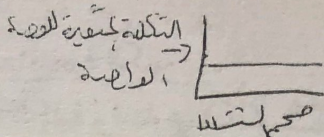 التكلفة المتغيرة للوحدة
الواحدة
حجم النشاط